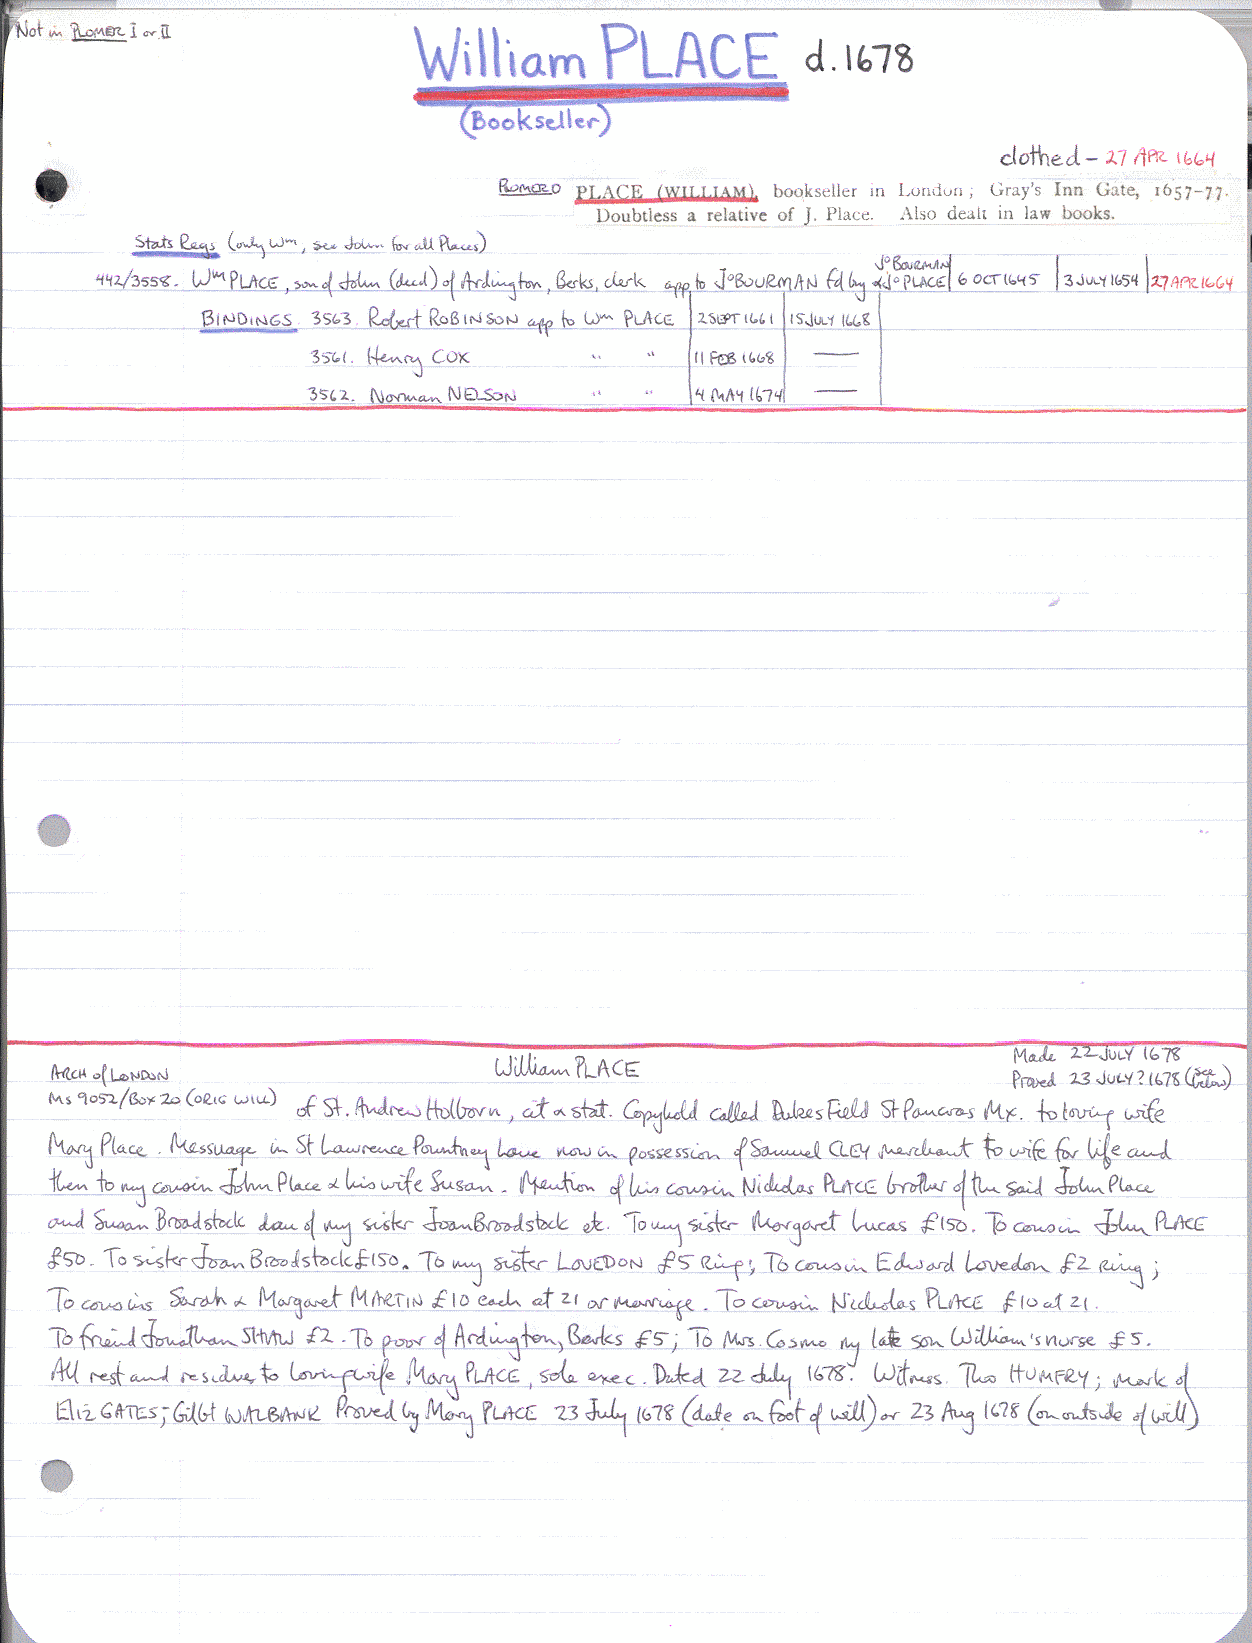 Not in PLOMER I or II
William PLACE d.1678
(Bookseller)
clothed - 27 APR 1664
PLOMER O PLACE (WILLIAM), bookseller in London; Gray's Inn Gate, 1657-77.
Doubtless a relative of J. Place. Also dealt in law books.
Stats Regs (only Wm, see John for all Places)
442/3558. Wm PLACE, son of John (decd) of Ardington, Berks, clerk app to Jo BOURMAN Fd by Jo BOURMAN & Jo PLACE 6 OCT 1645 3 JULY 1654 27 APR 1664
BINDINGS 3563. Robert ROBINSON app to Wm PLACE 2 SEPT 1661 15 JULY 1668
3561. Henry COX " " 11 FEB 1668 —
3562. Norman NELSON " " 4 MAY 1674 —
William PLACE
Made 22 JULY 1678
ARCH of LONDON
Proved 23 JULY? 1678 (see below)
Ms 9052/Box 20 (ORIG WILL) of St. Andrew Holborn, cit & stat. Copyhold called Dukes Field St Pancras Mx. to loving wife
Mary Place. Messuage in St Lawrence Pountney Lane now in possession of Samuel CLEY merchant to wife for life and
then to my cousin John Place & his wife Susan. Mention of his cousin Nicholas PLACE brother of the said John Place
and Susan Broadstock dau of my sister Joan Broadstock etc. To my sister Margaret Lucas £150. To cousin John PLACE
£50. To sister Joan Broadstock £150. To my sister LOVEDON £5 Ring; To cousin Edward Lovedon £2 ring;
To cousins Sarah & Margaret MARTIN £10 each at 21 or marriage. To cousin Nicholas PLACE £10 at 21.
To friend Jonathan SHAW £2. To poor of Ardington, Berks £5; To Mrs. Cosmo my late son William's nurse £5.
All rest and residue to loving wife Mary PLACE, sole exec. Dated 22 July 1678. Witness. Tho HUMFRY; mark of
Eliz GATES; Gilbt WALBANK Proved by Mary PLACE 23 July 1678 (date on foot of will) or 23 Aug 1678 (on outside of will)